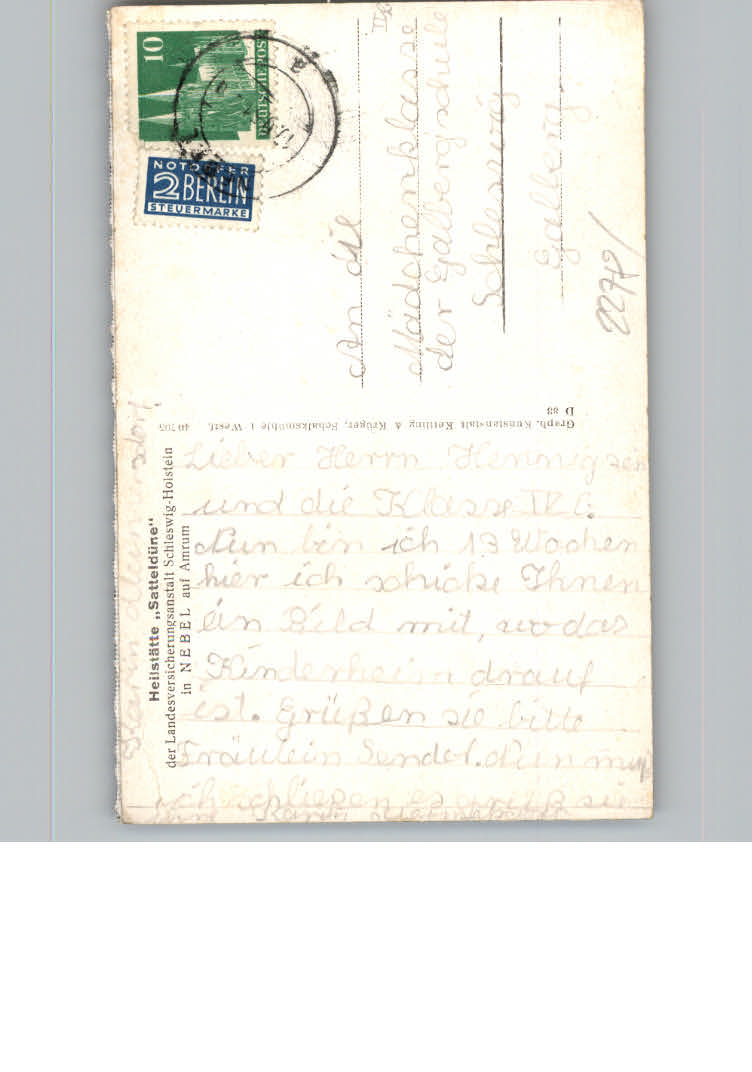 Heilstätte „Satteldüne"
der Landesversicherungsanstalt Schleswig-Holstein
in NEBEL auf Amrum
Lieber Herrn Hennigsen
und die Klasse IV C.
Nun bin ich 13 Wochen
hier ich schicke Ihnen
ein Bild mit, wo das
Kinderheim drauf
ist. Grüßen sie bitte
Fräulein Sendel. Nun muß
ich schließen es grüß sie
Karin
10
DEUTSCHE POST
NOTOPFER
2 BERLIN
STEUERMARKE
An die
Mädchenklasse
der Galbergschule
Schleswig
Galberg
2272/
Graph. Kunstanstalt Ketting & Krüger, Schalksmühle i. Westf.
D 33